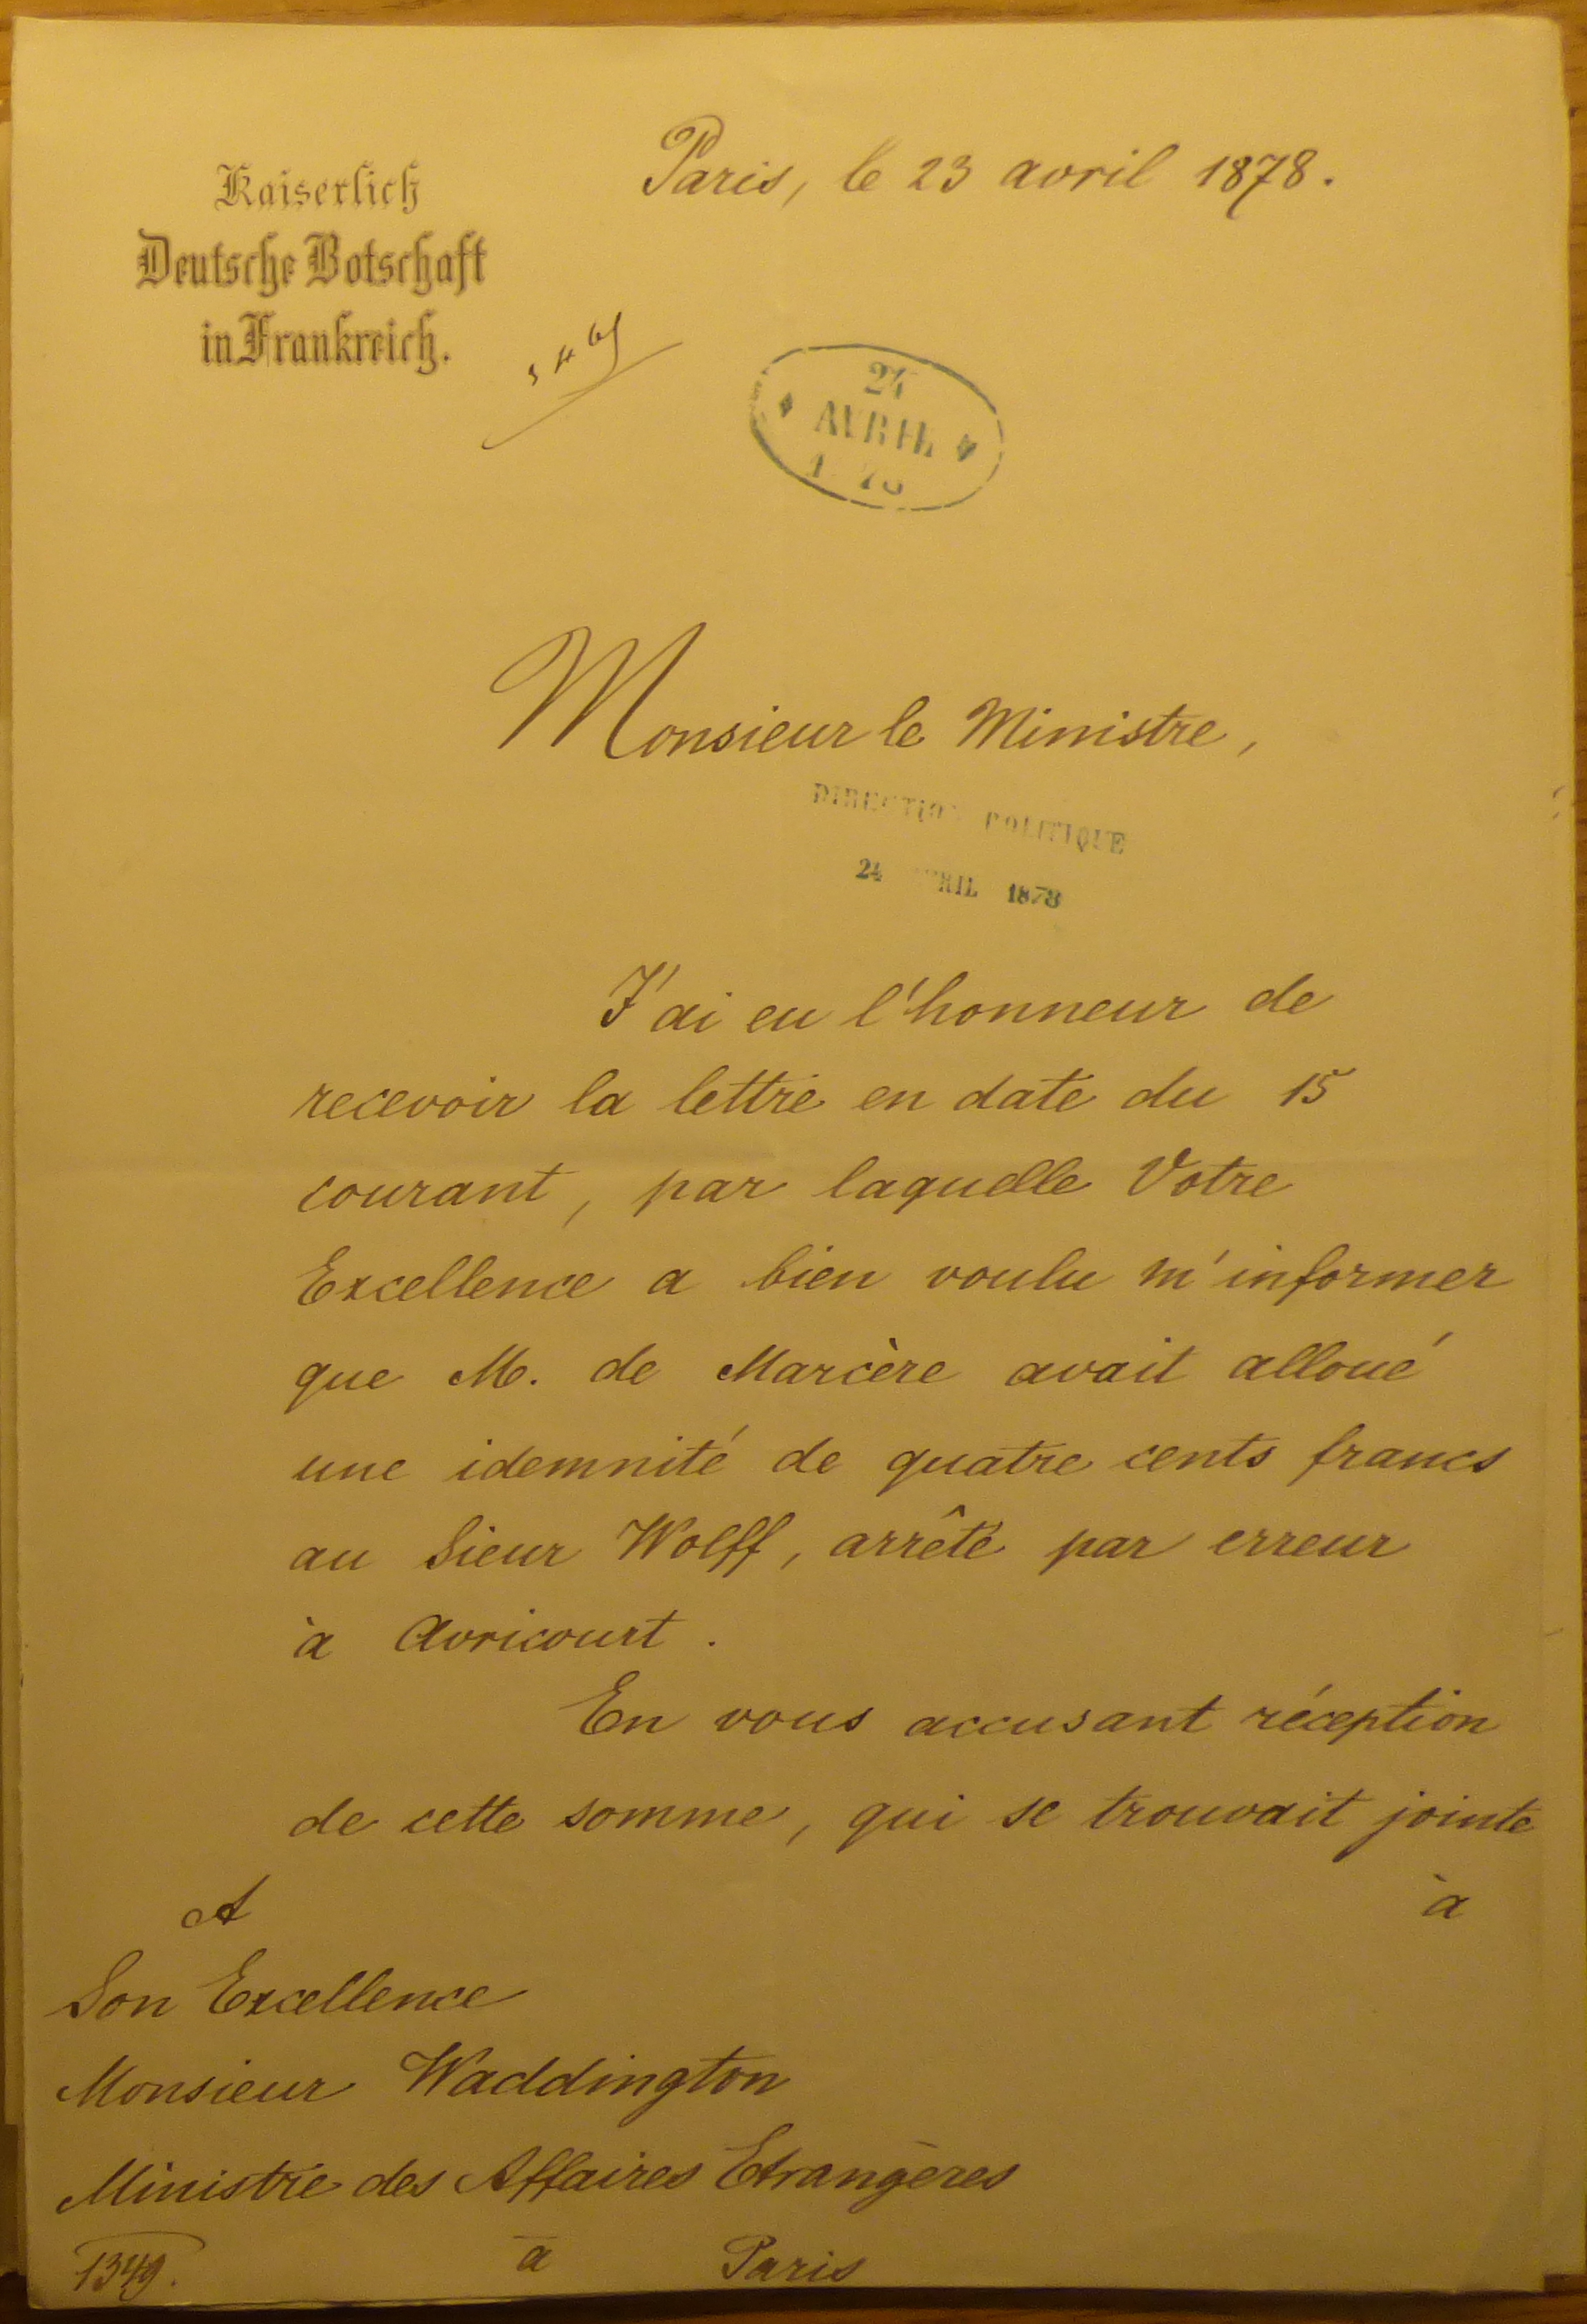 Kaiserlich
Deutsche Botschaft
in Frankreich.
Paris, le 23 avril 1878.
24
AVRIL
Monsieur le Ministre,
DIRECTION POLITIQUE
24 AVRIL 1878
J'ai eu l'honneur de
recevoir la lettre en date du 15
courant, par laquelle Votre
Excellence a bien voulu m'informer
que M. de Marcère avait alloué
une idemnité de quatre cents francs
au Sieur Wolff, arrêté par erreur
à Avricourt.
En vous accusant réception
de cette somme, qui se trouvait jointe
à
A
Son Excellence
Monsieur Waddington
Ministre des Affaires Etrangères
à Paris
1349.